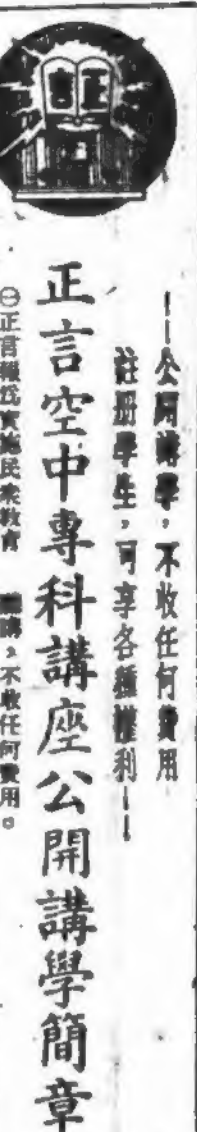 正言
——公開講學，不收任何費用
註册學生，可享各種權利——
正言空中專科講座公開講學簡章
㊀正言報為實施民衆教育
聽講，不收任何費用。